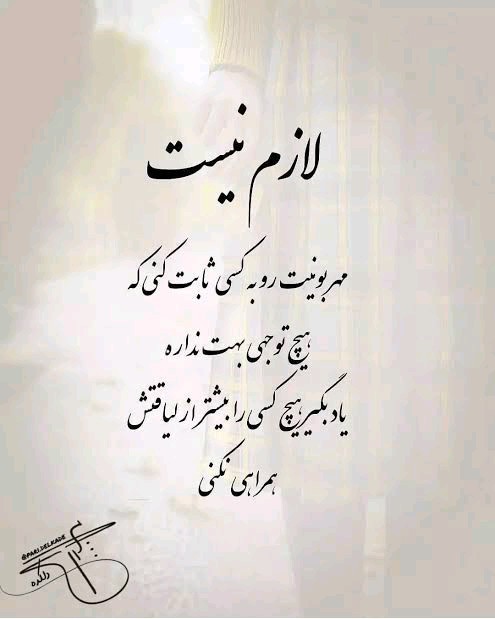 لازم نیست
مهربونیت رو به کسی ثابت کنی که
هیچ توجهی بهت نداره
یاد بگیر هیچ کسی را بیشتر از لیاقتش
همراهی نکنی
@PARI.DELKADE
دلکده